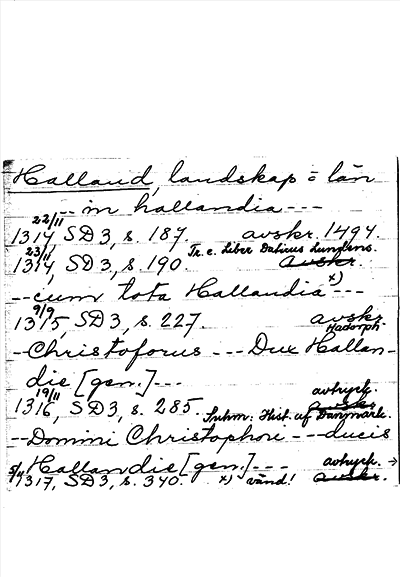 Halland, landskap = län
-- in hallandia ---
22/11
1314, SD 3, s. 187. avskr. 1494.
23/11 Tr. e. Liber Daticus Lundens.
1314, SD 3, s. 190. avskr.
-- cum tota Hallandia x) ---
9/9
1315, SD 3, s. 227. avskr. Hadorph.
-- Christoforus --- Dux Hallan-
die [gen.] ---
19/11 avtryck.
1316, SD 3, s. 285. avskr.
Suhm: Hist. af Danmark.
-- Domini Christophori --- ducis
Hallandie [gen.] --- avtryck. →
1317, SD 3, s. 340. x) vänd! avskr.